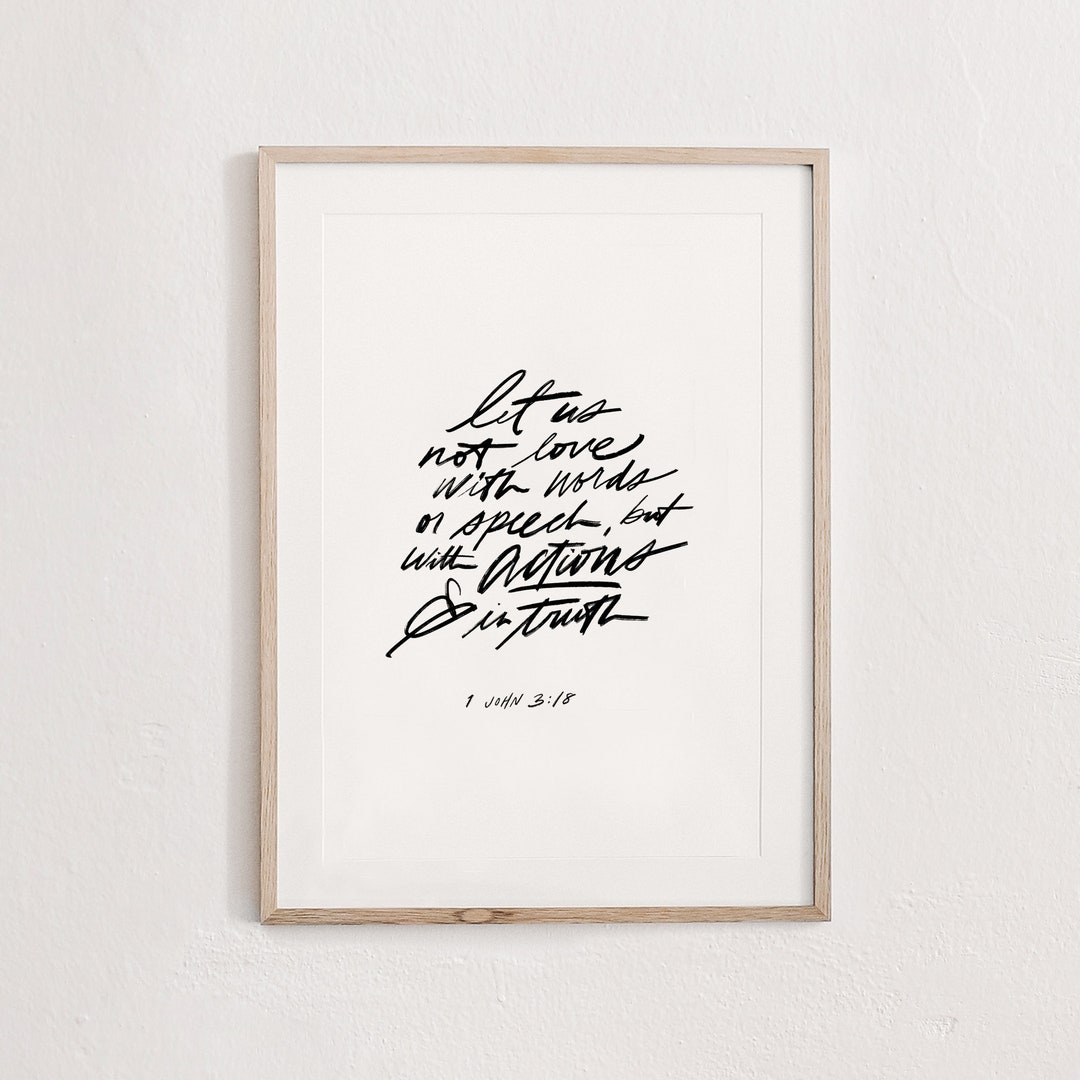 let us
not love
with words
or speech, but
with actions
& in truth
1 JOHN 3:18